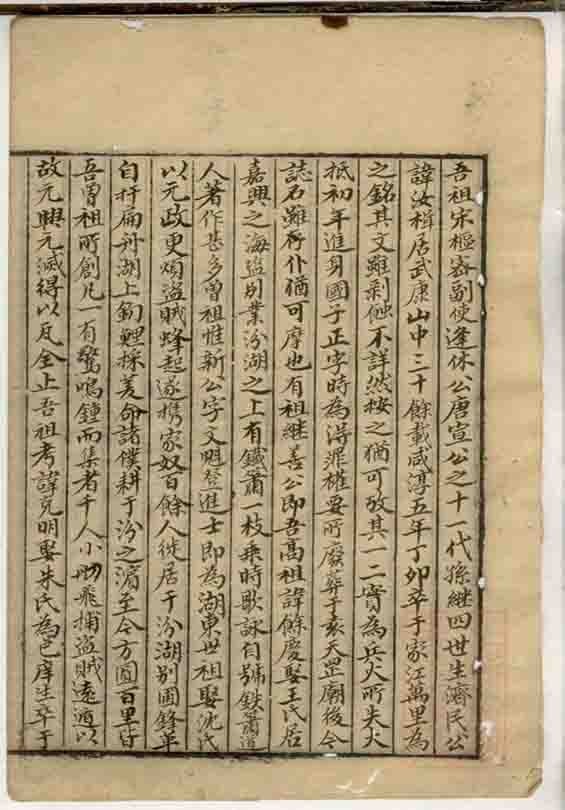 吾祖宋樞密副使逢休公唐宣公之十一代孫継四世生濟民公
諱汝楫居武康山中三十餘載咸淳五年丁卯卒于家江萬里為
之銘其文雖剥蝕不詳然按之猶可攷其一二實為兵火所失大
抵初年進身國子正字時為淂罪權要所廢葬于袁天罡廟後今
誌石雖存仆猶可摩也有祖継善公即吾高祖諱餘慶娶王氏居
嘉興之海鹽别業汾湖之上有鐵簫一枝乘時歌詠自號鉄簫道
人著作甚多曽祖惟新公字文明登進士即為湖東世祖娶沈氏
以元政更燭盜賊蜂起遂携家奴百餘人徙居于汾湖别圃鋒年
自扞扁舟湖上釣鯉採菱命諸僕耕于汾之濵至今方圓百里皆
吾曽祖所創凡一有驚鳴鍾而集者千人小舠飛捕盜賊遠遁以
故元興元滅得以瓦全止吾祖考諱克明娶朱氏為邑庠生卒于